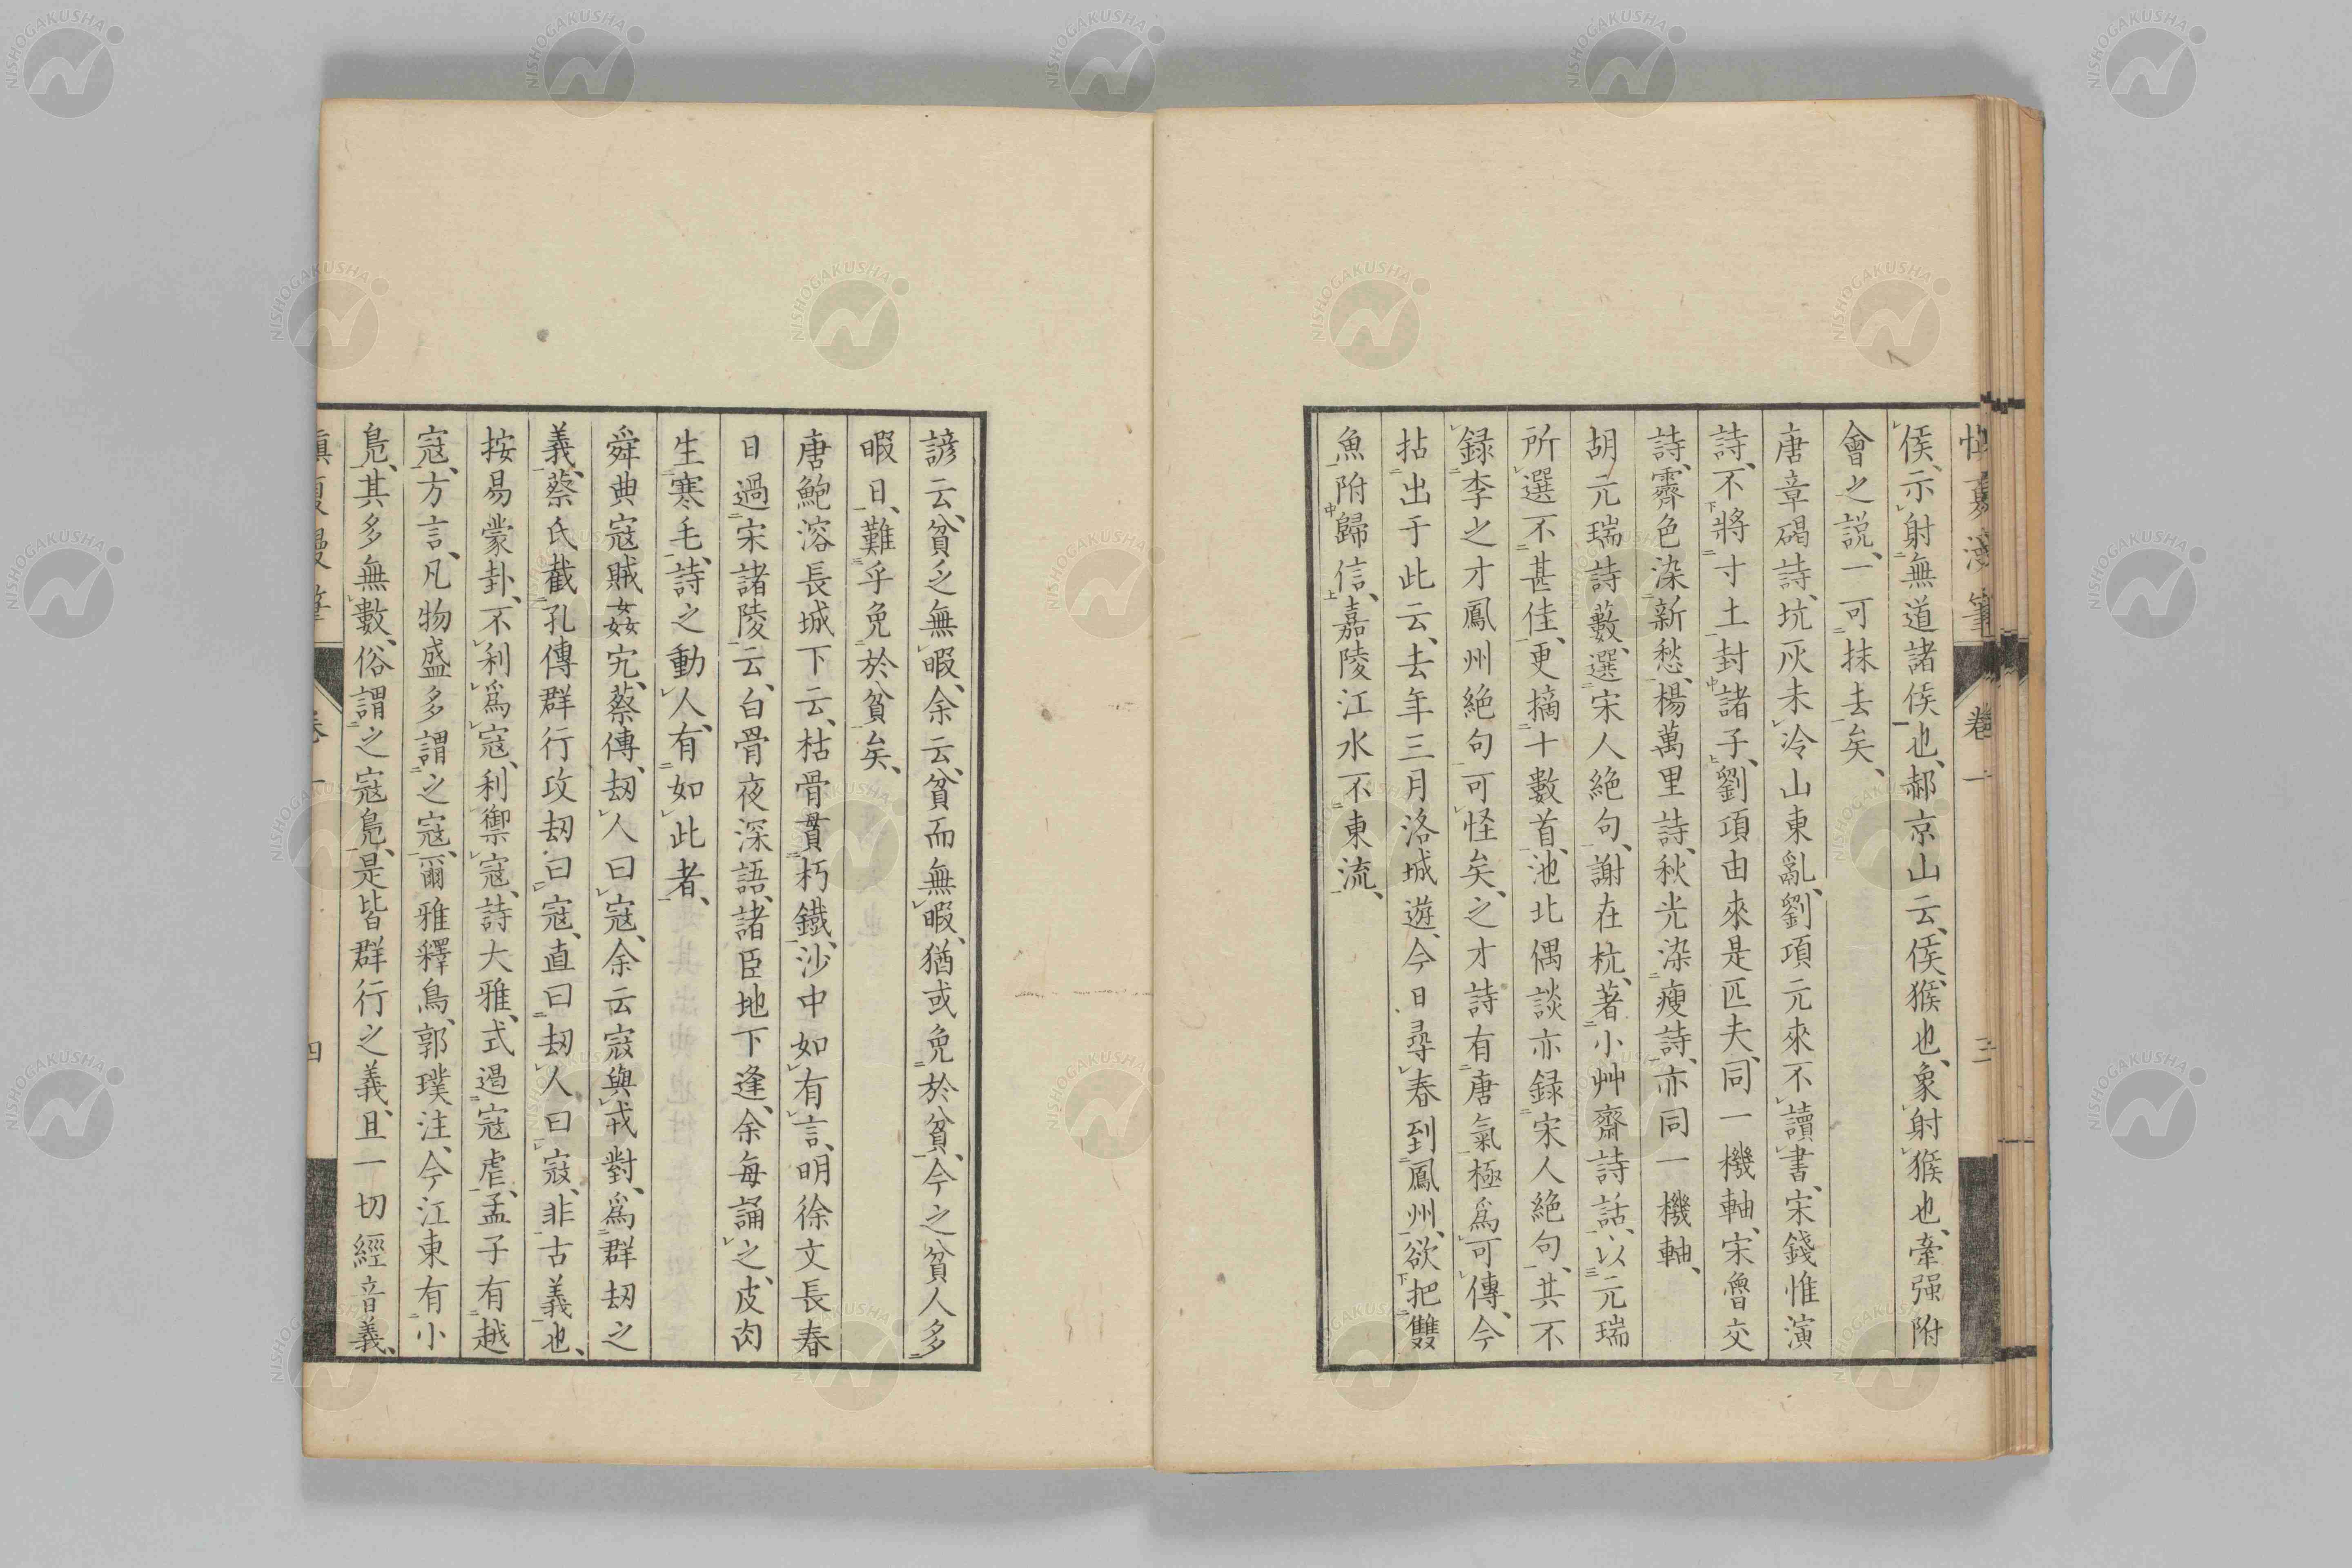 侯、示射無道諸侯也、郝京山云、侯、猴也、象射猴也、牽强附
會之説、一可抹去矣、
唐章碣詩、坑灰未冷山東亂、劉項元來不讀書、宋錢惟演
詩、不將寸土封諸子、劉項由來是匹夫、同一機軸、宋魯交
詩、霽色染新愁、楊萬里詩、秋光染瘦詩、亦同一機軸、
胡元瑞詩藪、選宋人絶句、謝在杭、著小艸齋詩話、以元瑞
所選不甚佳、更摘十數首、池北偶談亦録宋人絶句、其不
録李之才鳳州絶句可怪矣、之才詩有唐氣極爲可傳、今
拈出于此云、去年三月洛城遊、今日尋春到鳳州、欲把雙
魚附歸信、嘉陵江水不東流、
卷一
三
諺云、貧乏無暇、余云、貧而無暇、猶或免於貧、今之貧人多
暇日、難乎免於貧矣、
唐鮑溶長城下云、枯骨貫朽鐵、沙中如有言、明徐文長春
日過宋諸陵云、白骨夜深語、諸臣地下逢、余每誦之、皮肉
生寒毛、詩之動人、有如此者、
舜典寇賊姦宄、蔡傳、劫人曰寇、余云寇與戎對、爲群劫之
義、蔡氏截孔傳群行攻劫曰寇、直曰劫人曰寇、非古義也、
按易蒙卦、不利爲寇、利禦寇、詩大雅、式遏寇虐、孟子有越
寇、方言、凡物盛多謂之寇、爾雅釋鳥、郭璞注、今江東有小
鳧、其多無數、俗謂之寇鳧、是皆群行之義、且一切經音義、
卷一
四
NISHOGAKUSHA